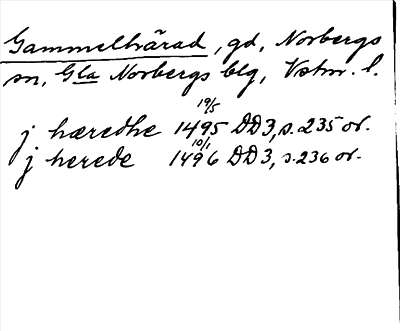 Gammelhärad, gd, Norbergs
sn, Gla Norbergs blg, Vstm. l.
j hæredhe 19/5 1495 DD3, s. 235 or.
j herede 10/1 1496 DD3, s. 236 or.